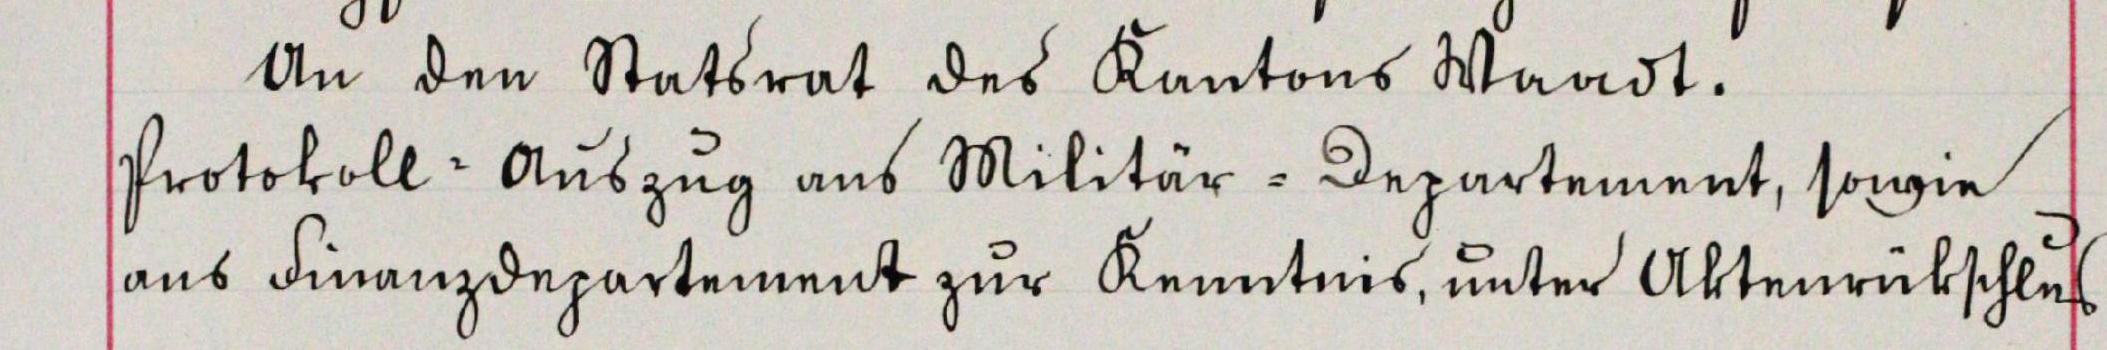 An den Statsrat des Kantons Waadt.
Protokoll-Auszug ans Militär-Departement, sowie
ans Finanzdepartement zur Kenntnis, unter Aktenrükschluß